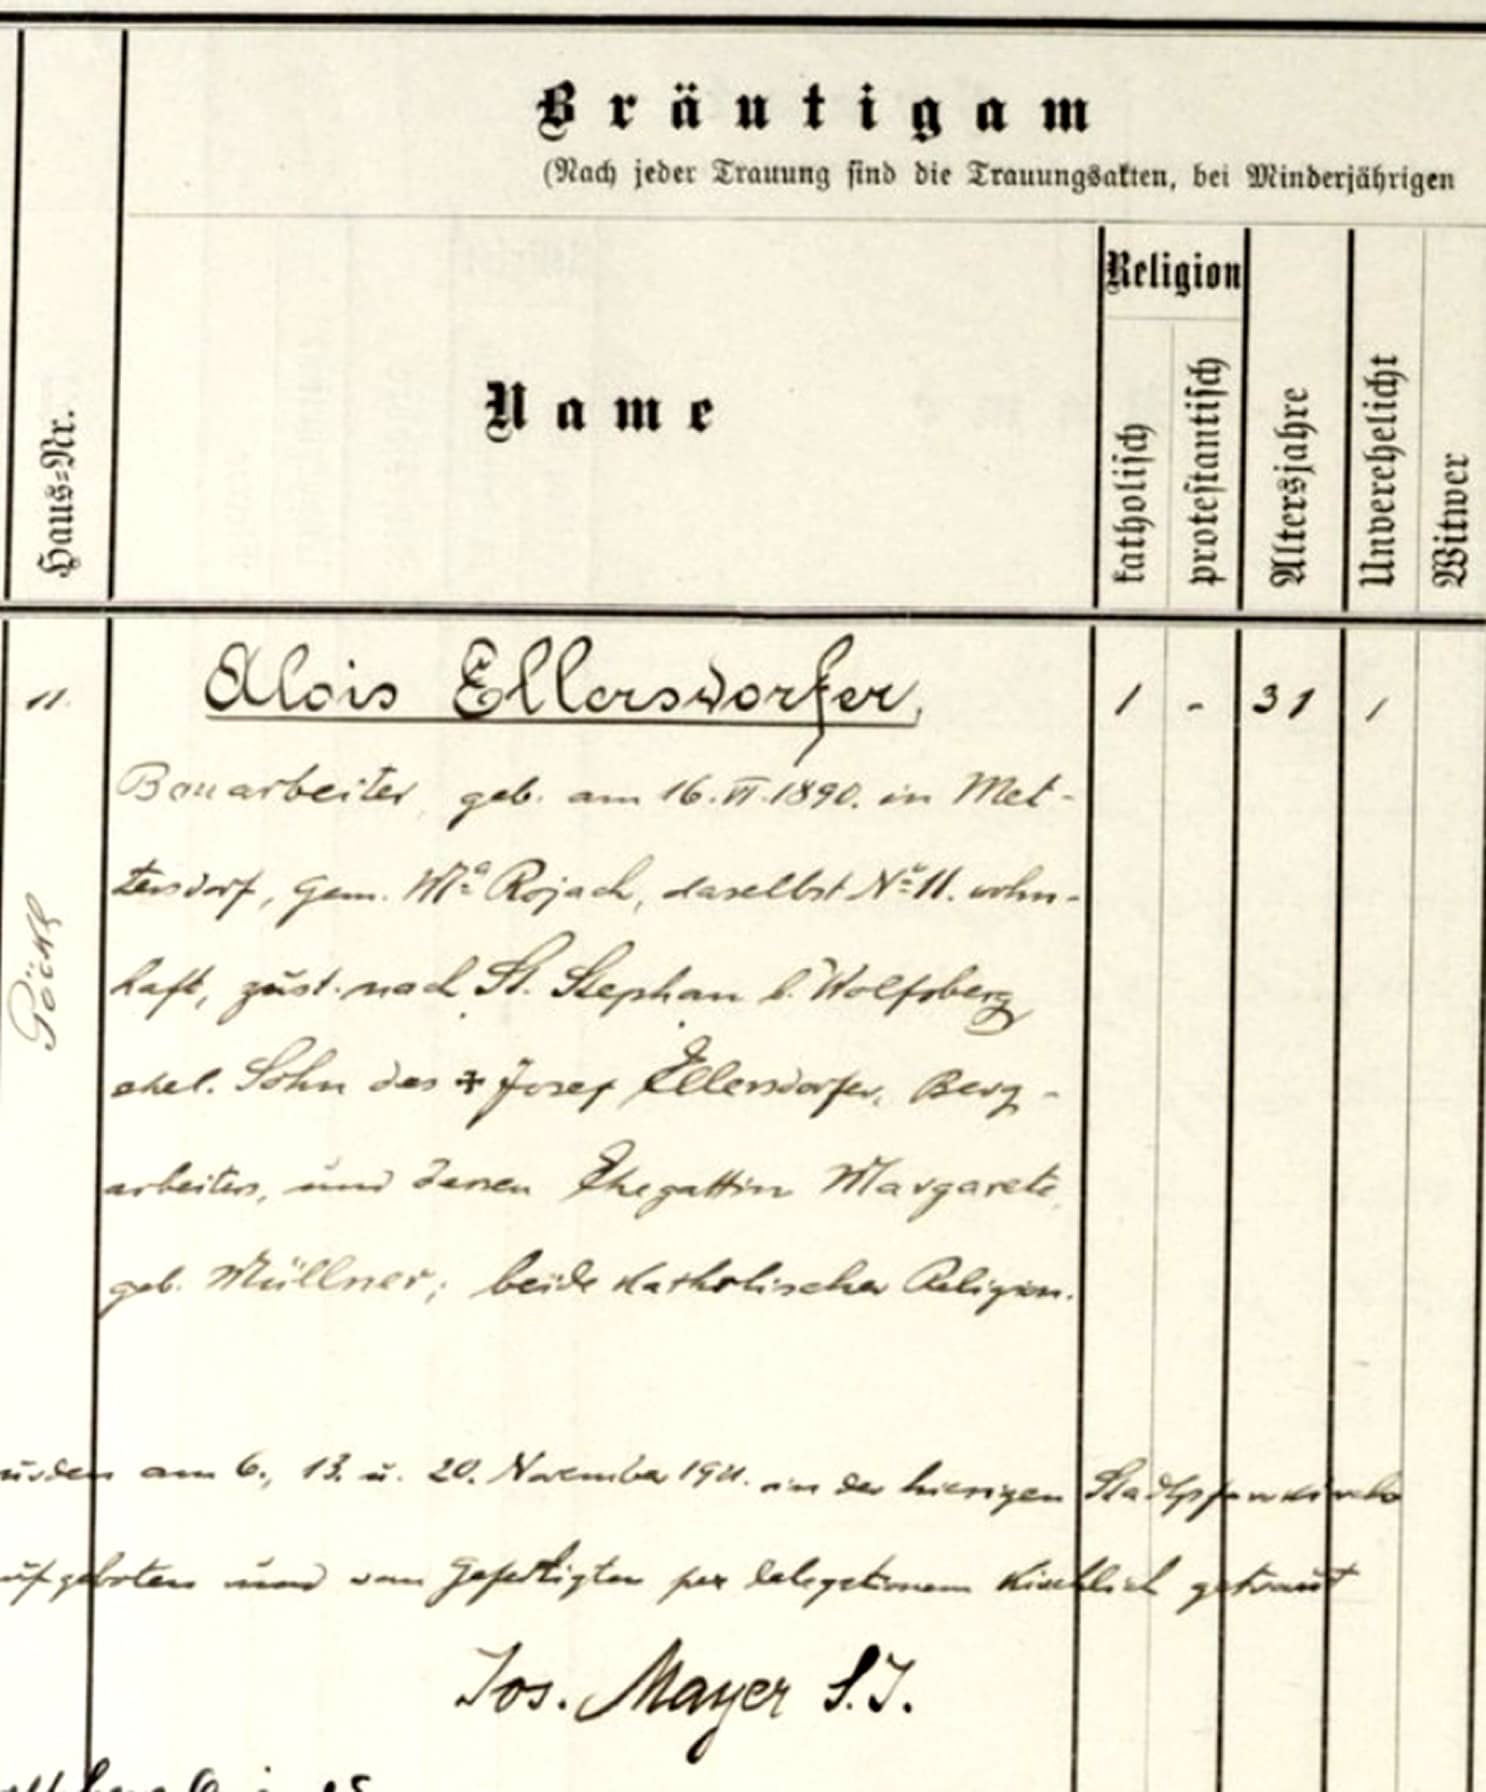 Bräutigam
(Nach jeder Trauung sind die Trauungsakten, bei Minderjährigen
Haus=Nr.
Name
Religion
katholisch
protestantisch
Altersjahre
Unverehelicht
Witwer
11. Alois Ellersdorfer, 1 - 31 1
Bauarbeiter, geb. am 16. VI. 1890. in Met-
tersdorf, Gem. Mª Rojach, daselbst Nº 11. wohn-
haft, zust. nach St. Stephan b. Wolfsberg
ehel. Sohn des ✝ Josef Ellersdorfer, Berg-
arbeiters, und dessen Ehegattin Margarete,
geb. Müllner; beide katholischer Religion.
Pöckl
urden am 6., 13. u. 20. November 1921. in der hiesigen Stadtpfarrkirche
ufgeboten und vom Gefertigten per delegationem kirchlich getraut
Jos. Mayer S.J.